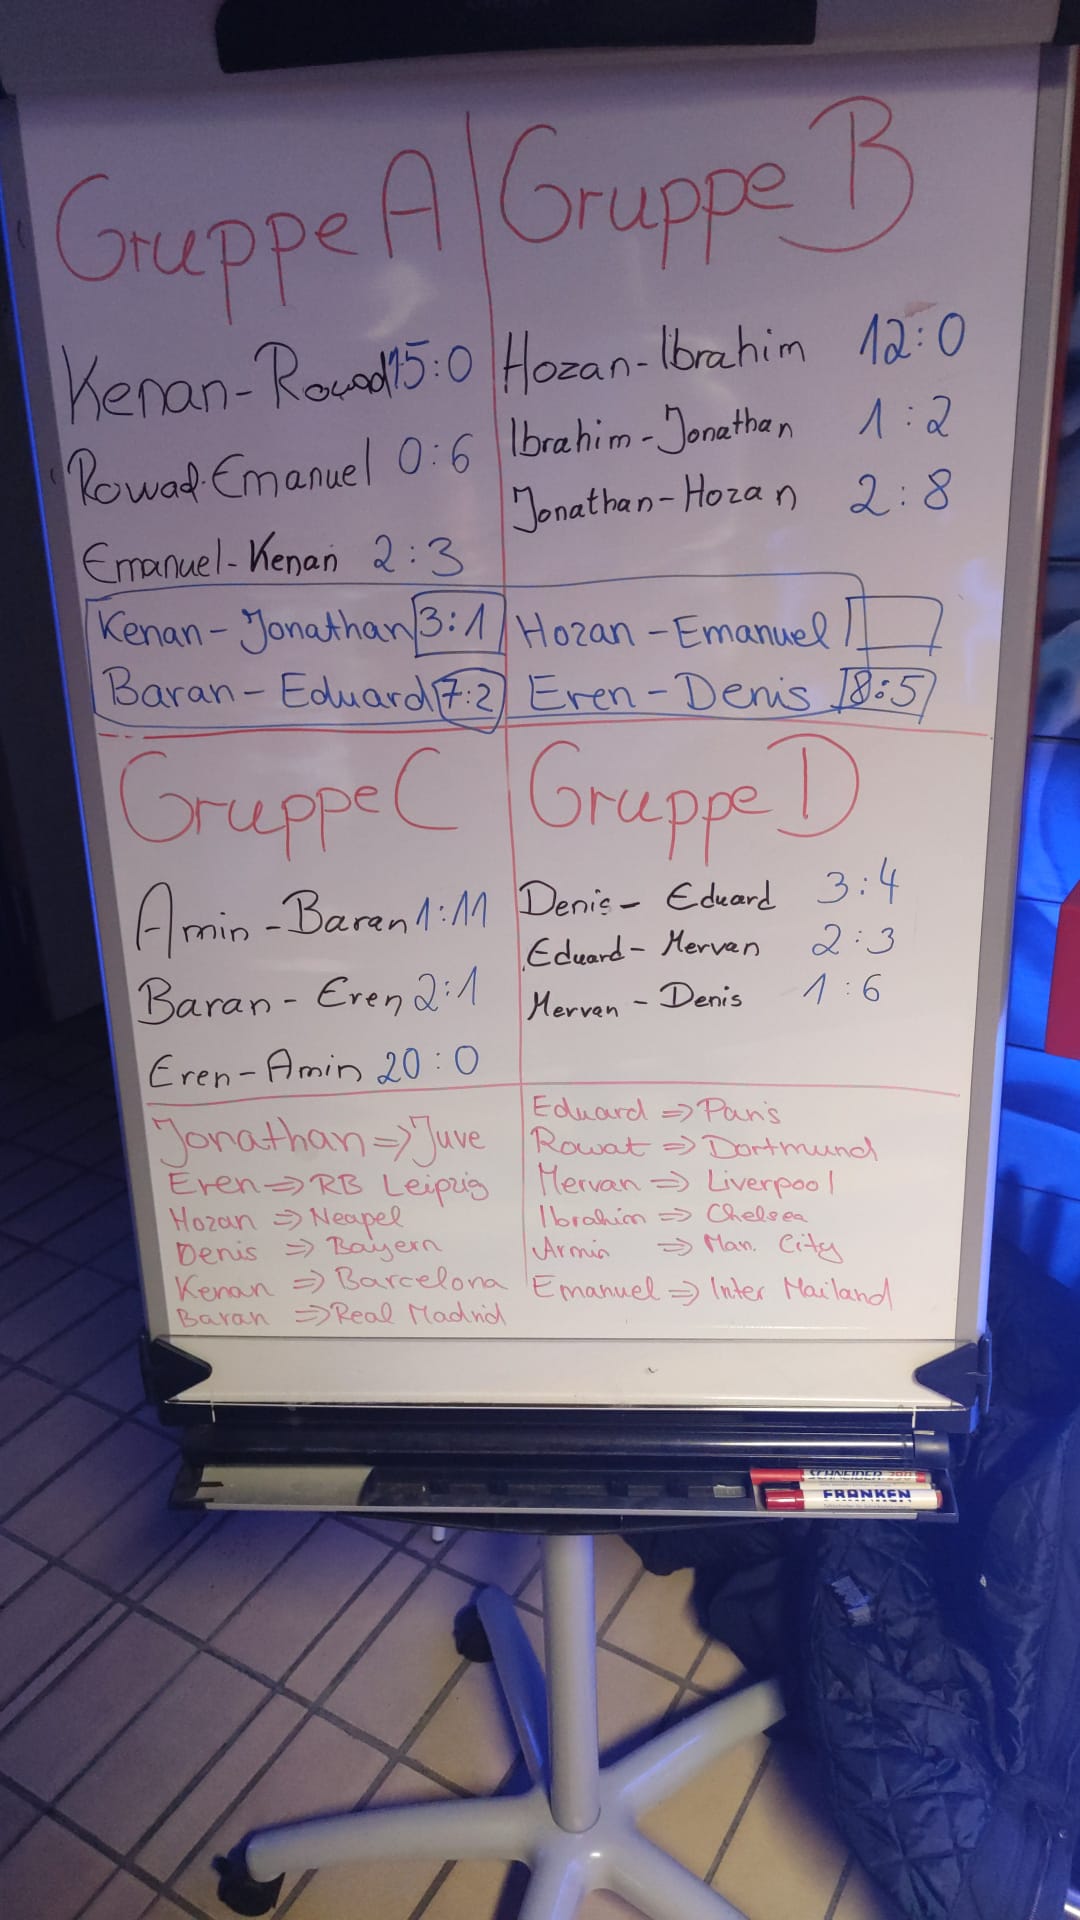 Gruppe A
Kenan-Rowad 15:0
Rowad-Emanuel 0:6
Emanuel-Kenan 2:3
Gruppe B
Hozan-Ibrahim 12:0
Ibrahim-Jonathan 1:2
Jonathan-Hozan 2:8
Kenan-Jonathan 3:1
Baran-Eduard 7:2
Hozan-Emanuel
Eren-Denis 8:5
Gruppe C
Amin-Baran 1:11
Baran-Eren 2:1
Eren-Amin 20:0
Gruppe D
Denis-Eduard 3:4
Eduard-Mervan 2:3
Mervan-Denis 1:6
Jonathan => Juve
Eren => RB Leipzig
Hozan => Neapel
Denis => Bayern
Kenan => Barcelona
Baran => Real Madrid
Eduard => Paris
Rowat => Dortmund
Mervan => Liverpool
Ibrahim => Chelsea
Armin => Man. City
Emanuel => Inter Mailand
SCHNEIDER 290
FRANKEN